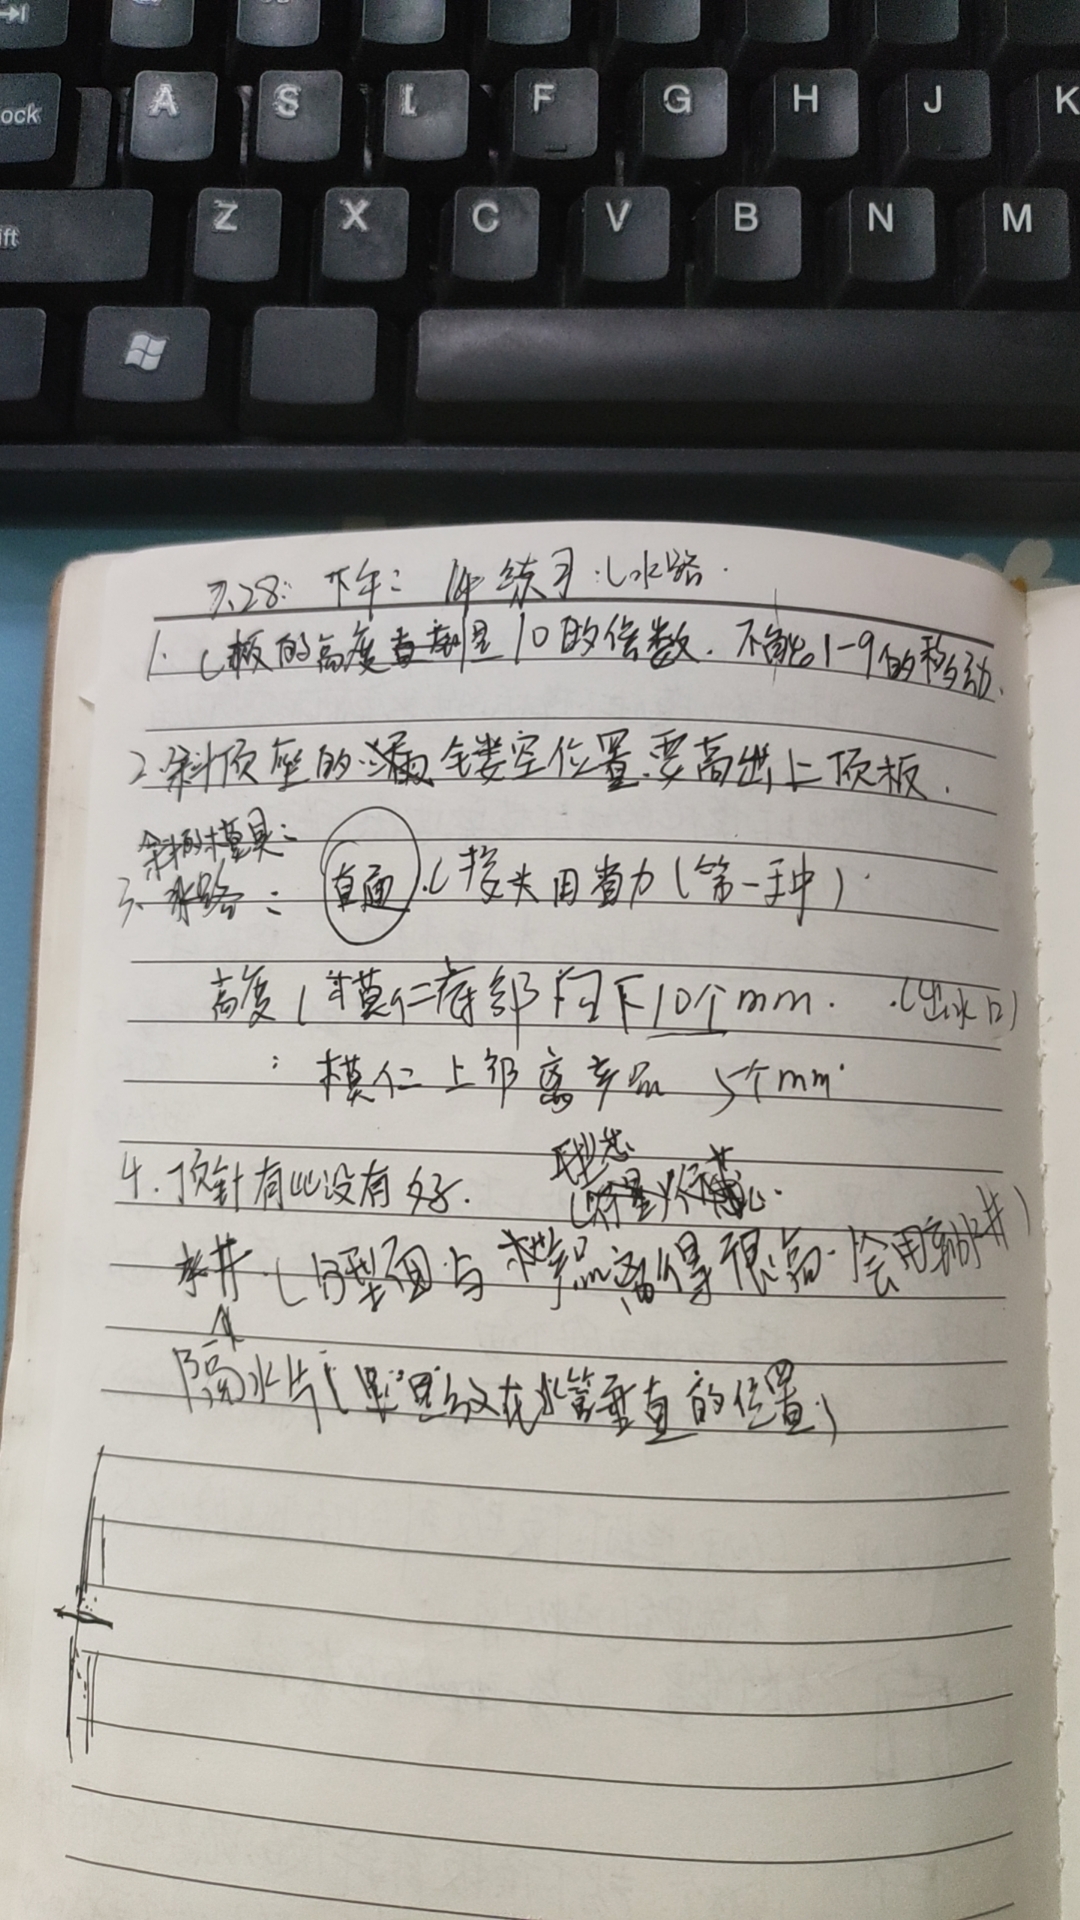 A S F G H J K
Z X C V B N M
7.28: 下午: 练习:(水路.
1. C板的高度直到是10的倍数. 不能1-9的移动.
2. 斜顶座的 镂空位置.要高出上顶板.
模具:
3. 水路: 直通.(接头用省力(第一种)
高度( 模仁底部往下10个mm. .(出水口)
: 模仁上部离产品 5个mm.
4. 顶针有没有好.
型芯
水井.( 型面与 产品 得很高. 会用到水井)
隔水片( 在水管垂直的位置)